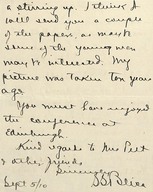 a stirring up. I think I
will send you a couple
of the papers as mark
some of the young men
may be interested. My
picture was taken ten years
ago.
You must have enjoyed
the conference at
Edinburgh.
Kind regards to Mrs Peet
& other friends
Sincerely
Sept 5/10